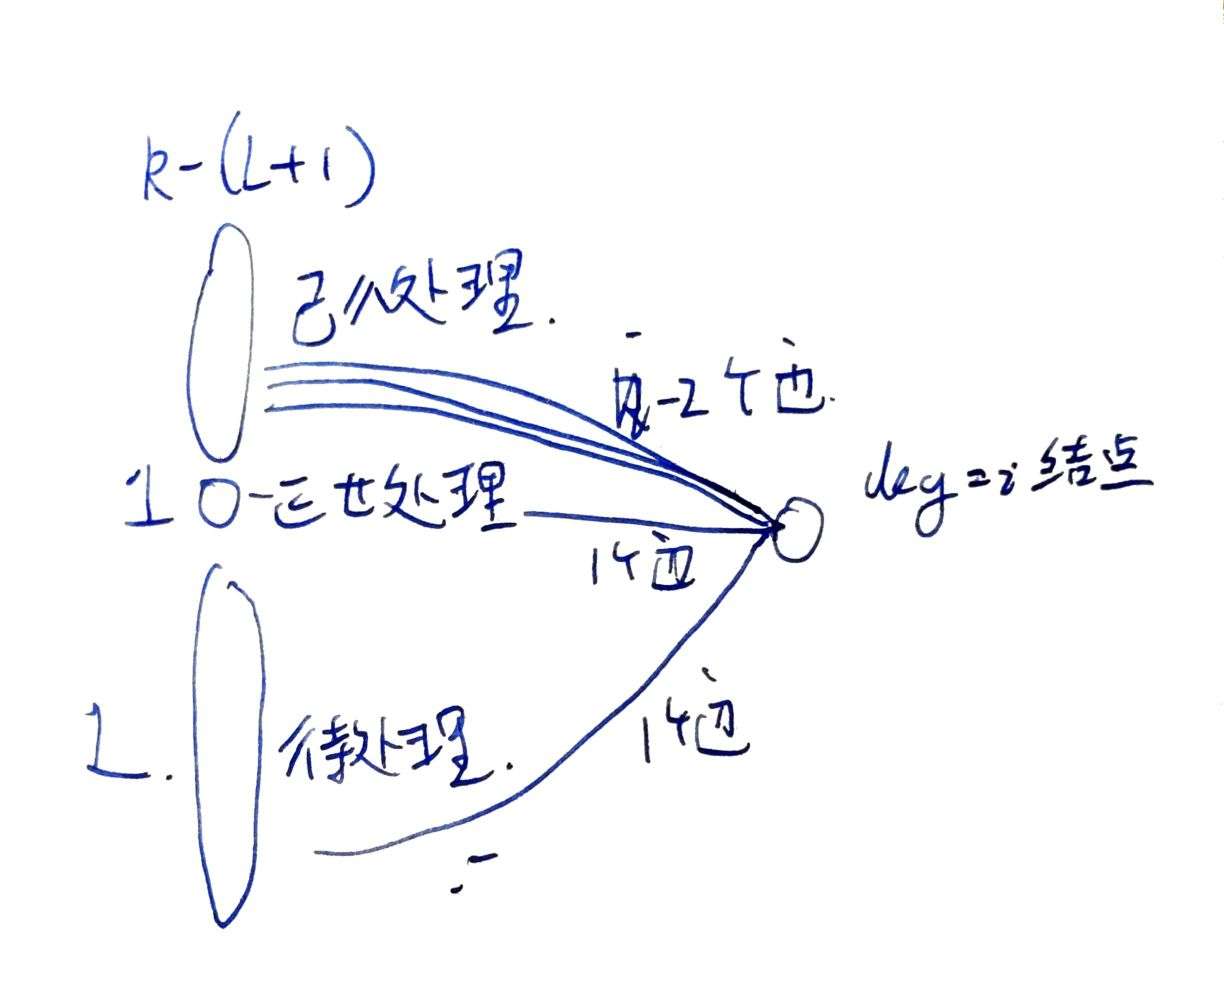 k-(L+1)
已从处理.
-2个边.
deg=i 结点
1 正在处理
1个边
L. 待处理.
1个边